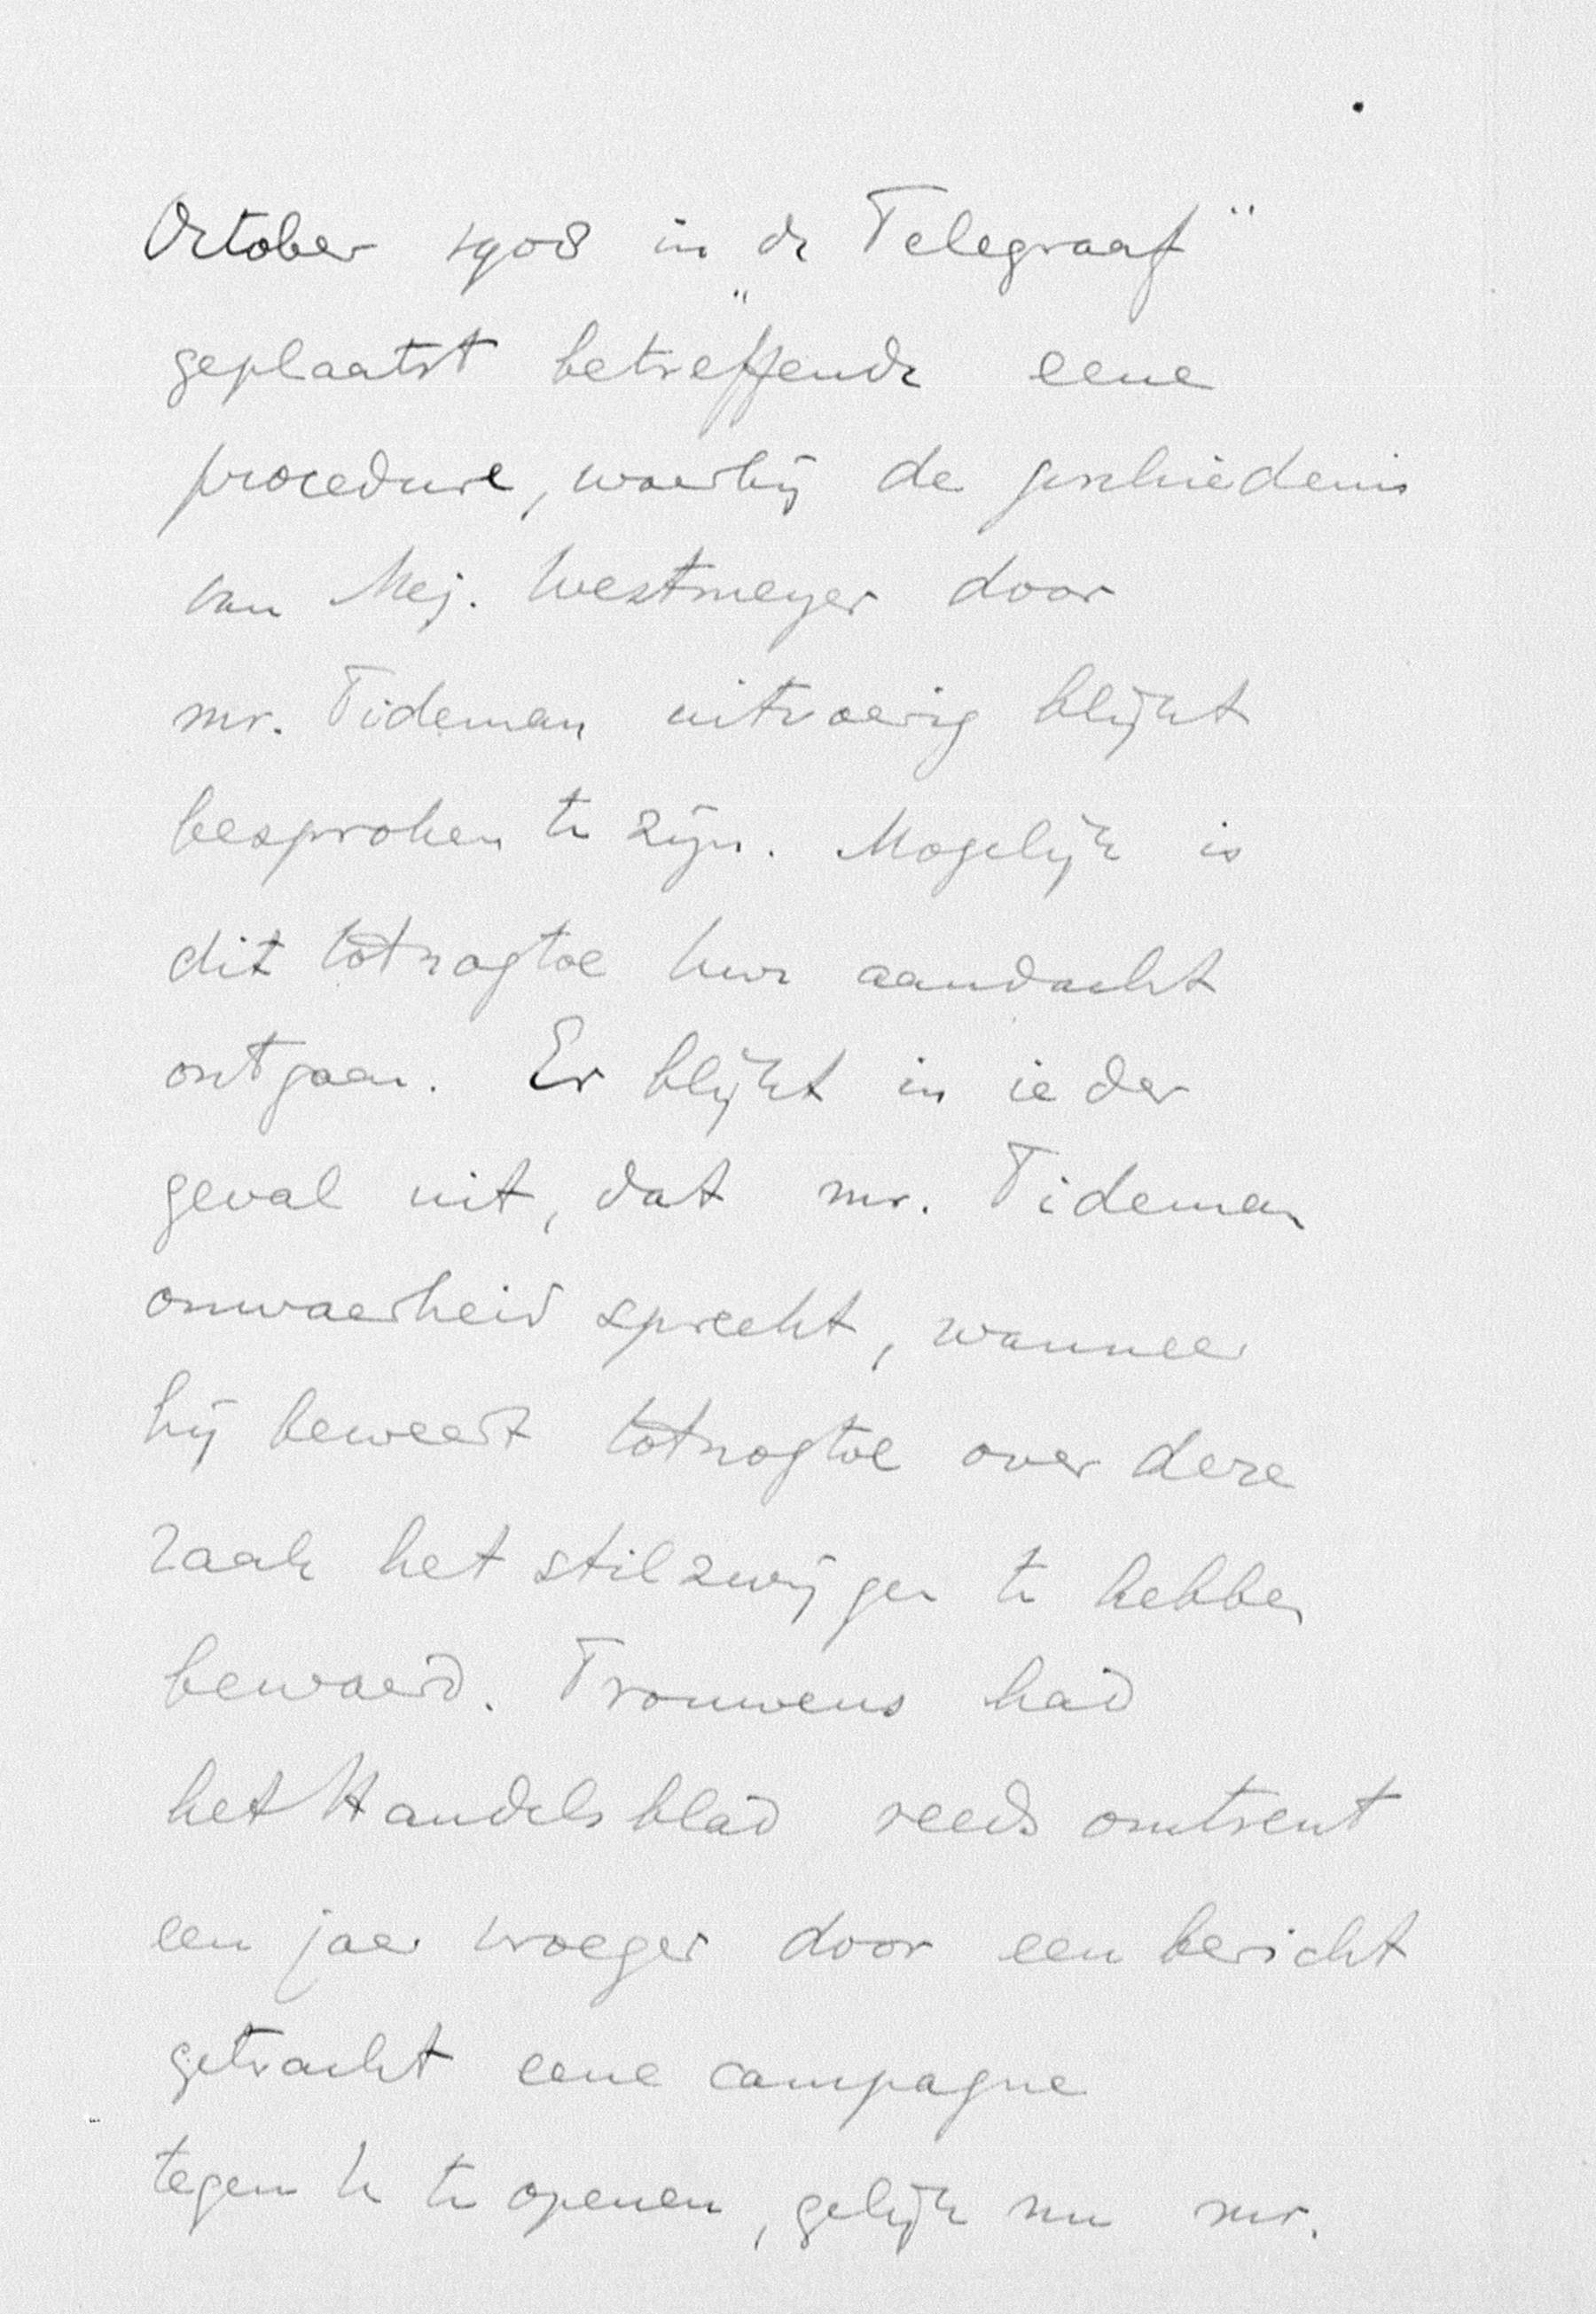 October 1908 in de „Telegraaf"
geplaatst betreffende eene
procedure, waarbij de geschiedenis
van Mej. Westmeyer door
mr. Tideman uitvoerig blijkt
besproken te zijn. Mogelijk is
dit totnogtoe Uwe aandacht
ontgaan. Er blijkt in ieder
geval uit, dat mr. Tideman
onwaarheid spreekt, wanneer
hij beweert totnogtoe over deze
zaak het stilzwijgen te hebben
bewaard. Trouwens had
het Handelsblad reeds omtrent
een jaar vroeger door een bericht
getracht eene campagne
tegen U te openen, gelijk nu mr.